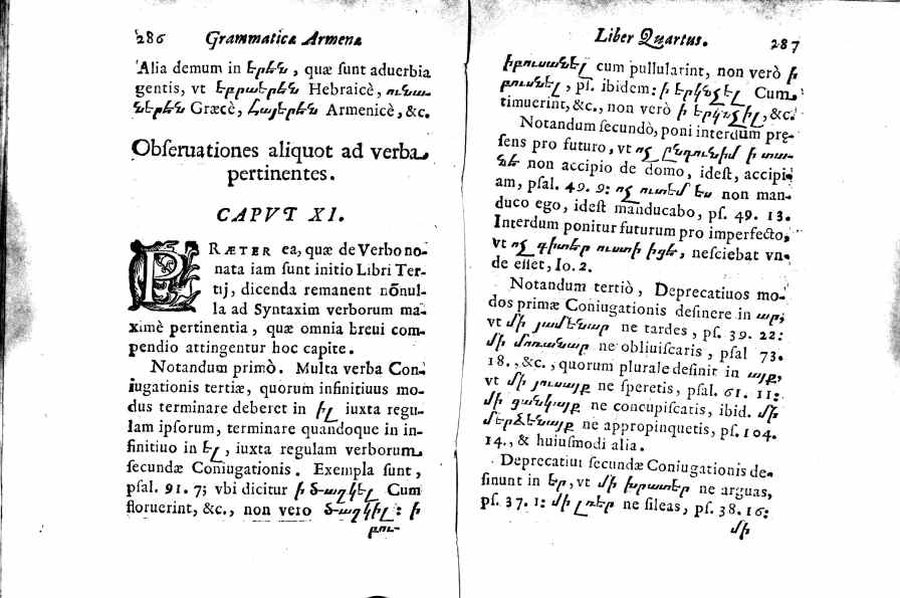 286 Grammaticæ Armenæ
Alia demum in երէն, quæ sunt aduerbia
gentis, vt երրաերէն Hebraicè, ունա-
նէրէն Græcè, Հայերէն Armenicè, &c.
Obseruationes aliquot ad verba
pertinentes.
CAPVT XI.
PRÆTER ea, quæ de Verbo no-
nata iam sunt initio Libri Ter-
tij, dicenda remanent nōnul-
la ad Syntaxim verborum ma-
ximè pertinentia, quæ omnia breui com-
pendio attingentur hoc capite.
Notandum primò. Multa verba Con-
iugationis tertiæ, quorum infinitiuus mo-
dus terminare deberet in իլ iuxta regu-
lam ipsorum, terminare quandoque in in-
finitiuo in ել, iuxta regulam verborum
secundæ Coniugationis. Exempla sunt,
psal. 91. 7; vbi dicitur ի ծաղկել Cum
floruerint, &c., non vero ծաղկիլ: ի
բու-
Liber Quartus. 287
իբուսանել cum pullularint, non verò ի
բուսնել, ps. ibidem: ի երկնչել Cum
timuerint, &c., non verò ի երկնչիլ, &c.
Notandum secundò, poni interdum præ-
sens pro futuro, vt ոչ ընդունիմ ի տա-
նէ non accipio de domo, idest, accipi-
am, psal. 49. 9: ոչ ուտեմ ես non man-
duco ego, idest manducabo, ps. 49. 13.
Interdum ponitur futurum pro imperfecto,
vt ոչ գիտէր ուստի իցէ, nesciebat vn-
de esset, Io. 2.
Notandum tertiò, Deprecatiuos mo-
dos primæ Coniugationis desinere in ար,
vt մի յամենար ne tardes, ps. 39. 22:
մի մոռանար ne obliuiscaris, psal 73.
18., &c., quorum plurale definit in այք,
vt մի յուսայք ne speretis, psal. 61. 11:
մի ցանկայք ne concupiscatis, ibid. մի
մերձենայք ne appropinquetis, ps. 104.
14., & huiusmodi alia.
Deprecatiui secundæ Coniugationis de-
sinunt in եր, vt մի խրատեր ne arguas,
ps. 37. 1: մի լռեր ne sileas, ps. 38. 16:
մի